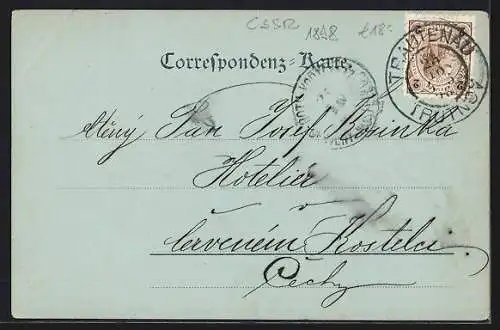 ČSSR 1898 €18-
Correspondenz-Karte.
TRAUTENAU
TRUTNOV
ctěný Pan Josef Kuninka
Hoteliér
v
Červeném Kostelci
Čechy